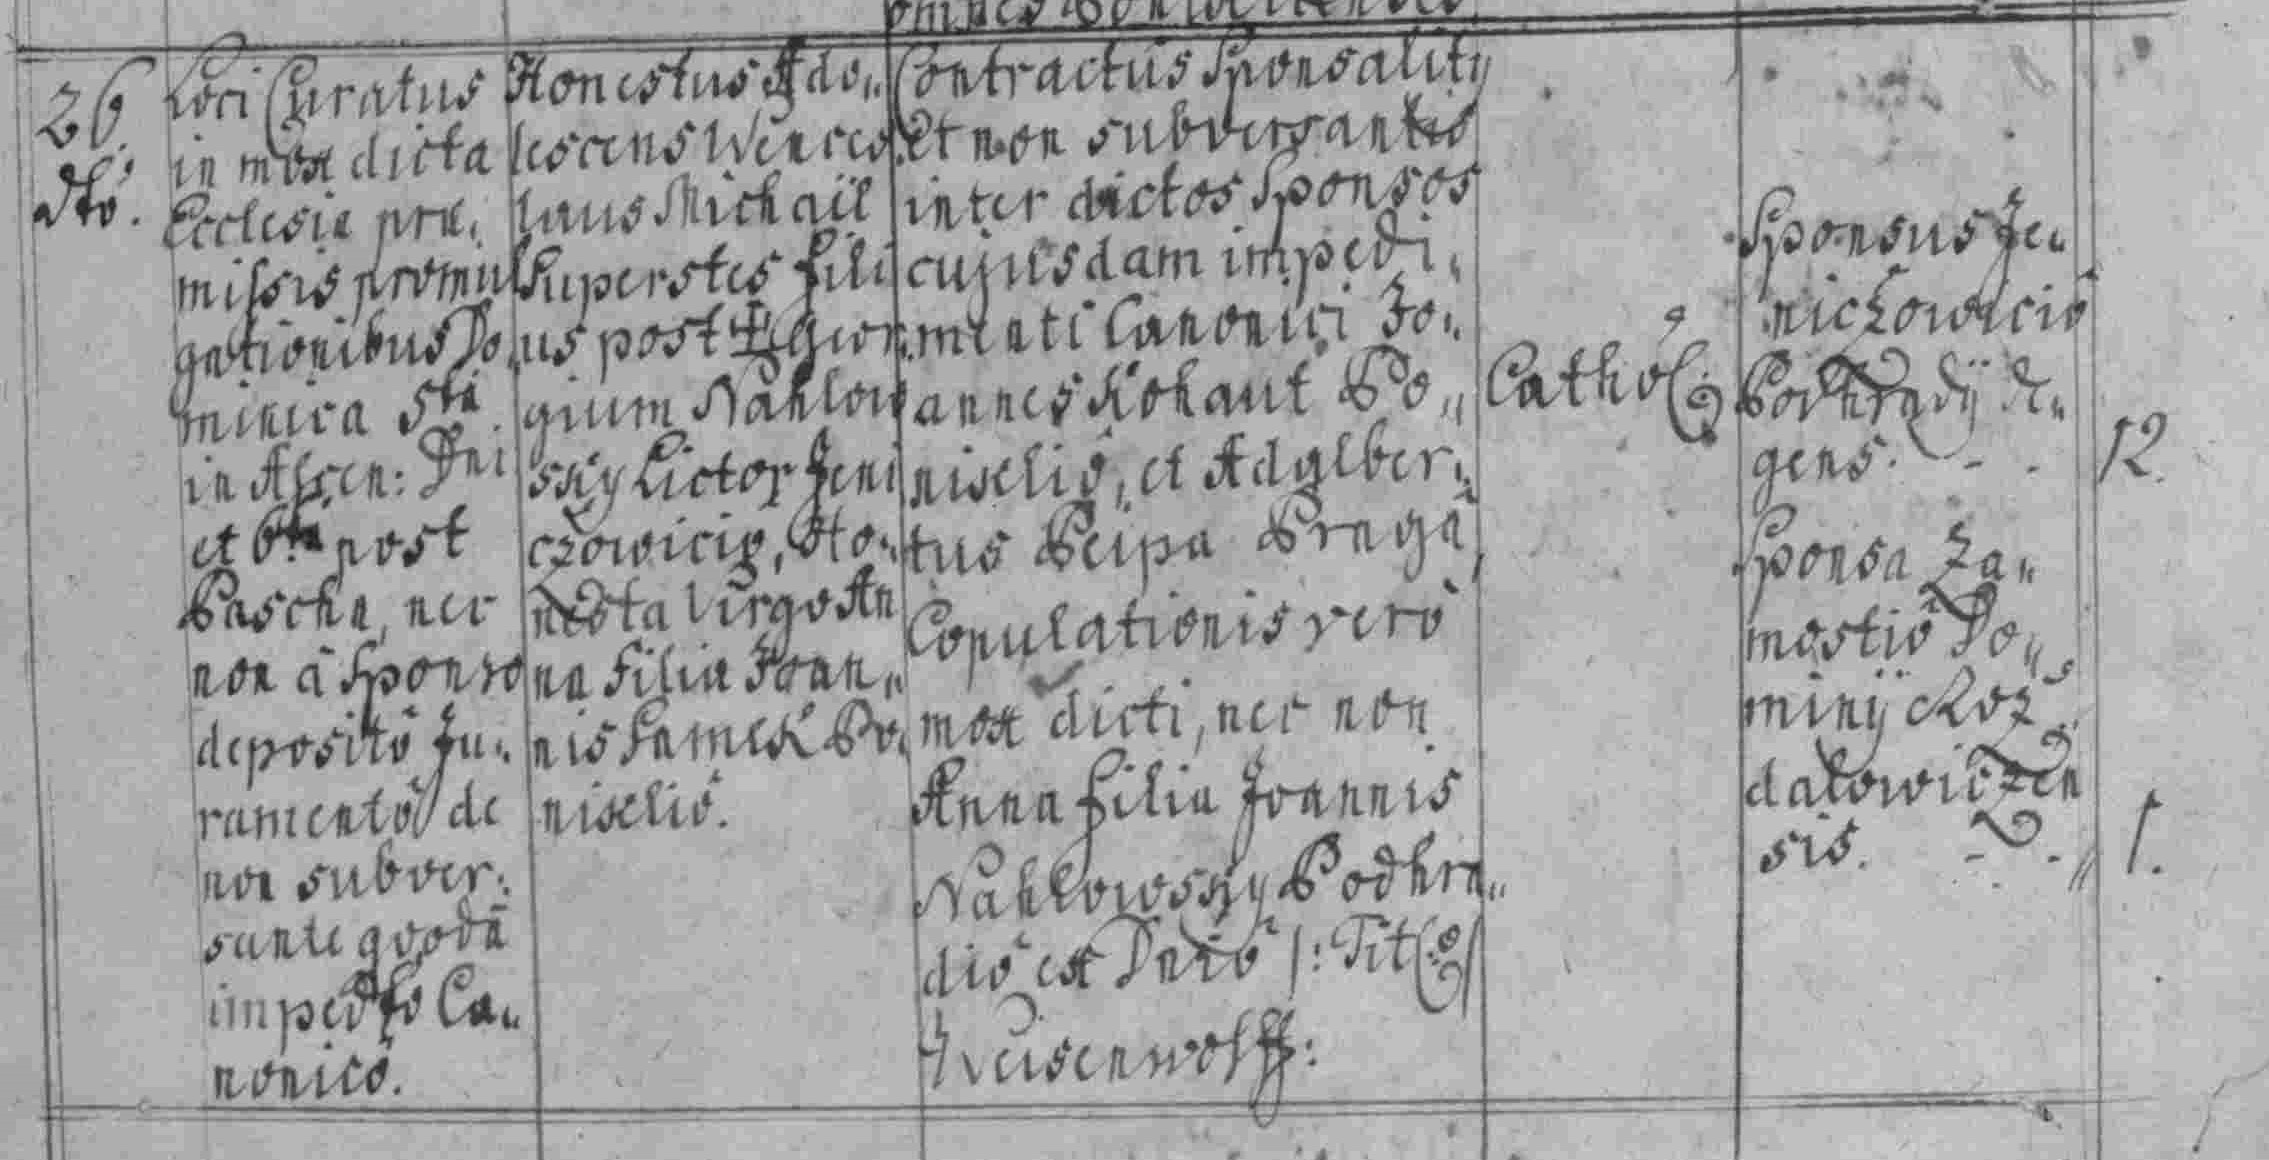 26.
dtô.
Loci Curatus
in mox dicta
Ecclesia præ,,
missis promul
gationibus Do,,
minica 5ta
in Ascen: Dni
et 6ta post
Pascha, nec
non à Sponso
depositô Ju,,
ramentô de
non subver,,
sante qvodã
imped̃tô Ca,,
nonicô.
Honestus Ado,,
lescens Wences,,
laus Michaël
Superstes fili
us post ☩ Geor,,
gium Nahlow
ssky Lictor Jeni
czowiciô, Ho,,
nesta Virgo An
na Filia Joan,,
nis Samek Bo,,
nixeliô.
Contractûs Sponsalitij
et non subversantis
inter dictos Sponsos
cujusdam impedi,,
menti Canonici Jo,,
annes Kohaut Bo,,
nixeliô, et Adalber,,
tus Peipa Pragâ,
Copulationis verô
mox dicti, nec non
Anna filia Joannis
Nahlowssky Podhra,,
diô ex Dniô /: Tit:
Weisenwolff:
Cathol:
Sponsus Je,,
niczowiciô
Podhradij de,,
gens. - -
12.
Sponsa Za,,
mostiô Do,,
minij Roz,,
dalowiczen
sis. - -
1.